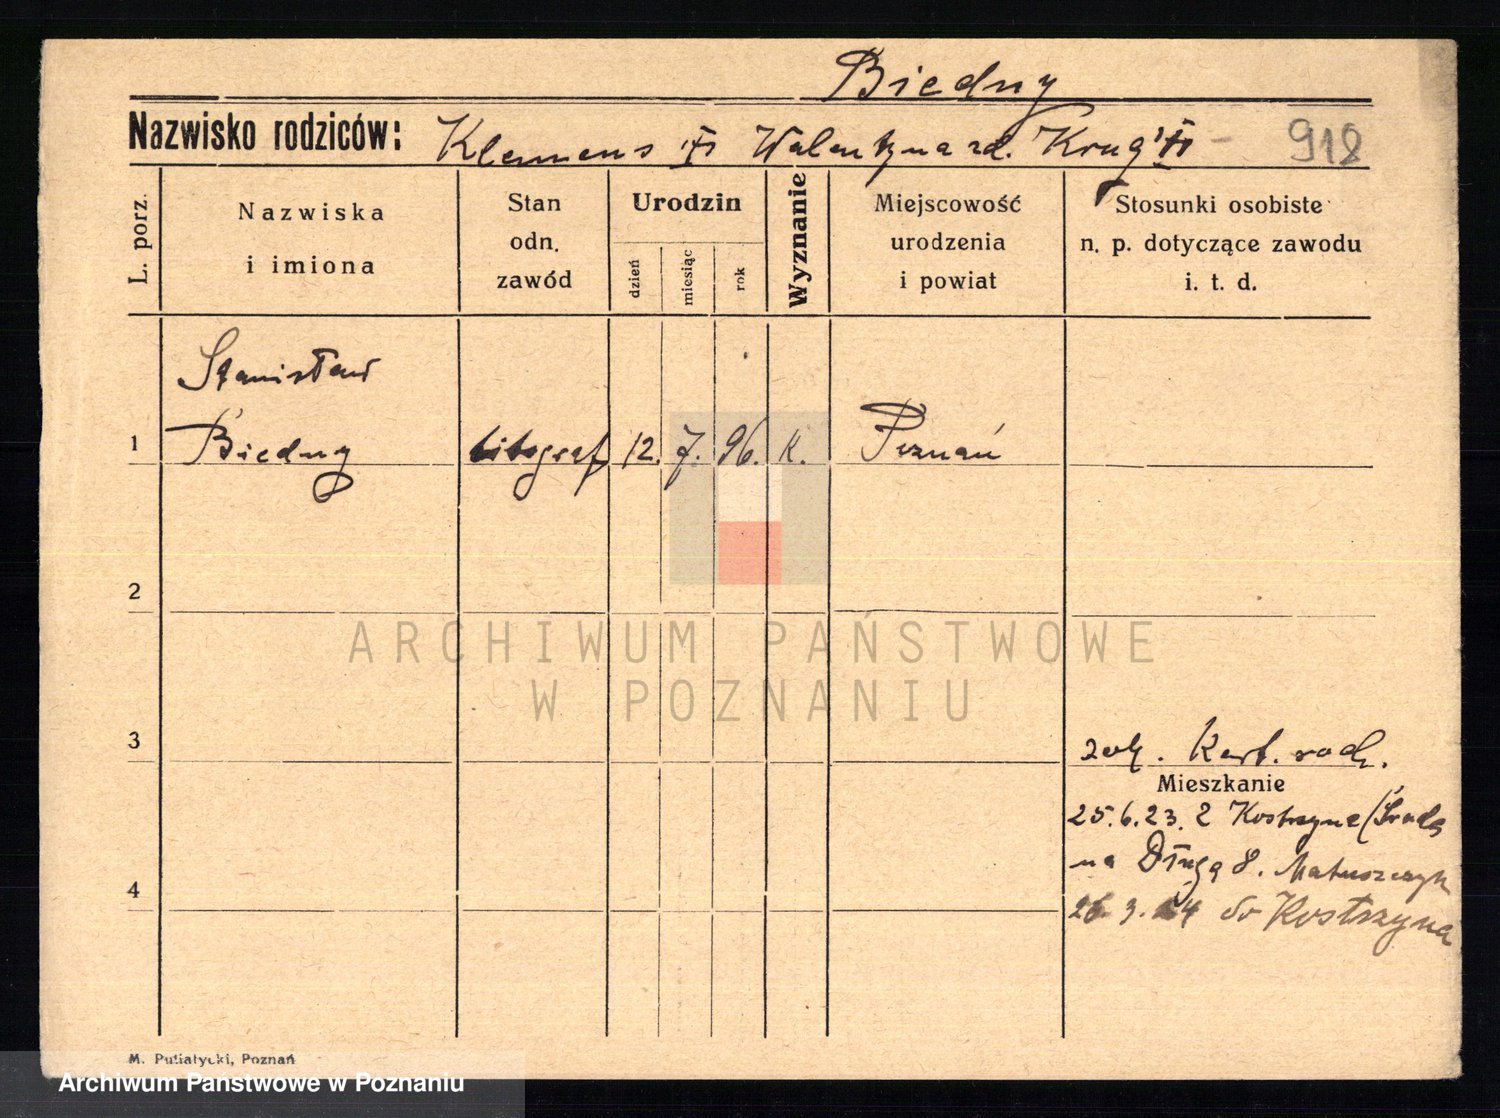 Biedny
Nazwisko rodziców: Klemens Walentyna zd. Krug 918
L. porz.
Nazwiska
i imiona
Stan
odn.
zawód
Urodzin
dzień
miesiąc
rok
Wyznanie
Miejscowość
urodzenia
i powiat
Stosunki osobiste
n. p. dotyczące zawodu
i. t. d.
Stanisław
1 Biedny litograf 12. 7. 96. k. Poznań
2
ARCHIWUM PAŃSTWOWE
W POZNANIU
3 zob. Kart. rodz.
Mieszkanie
25.6.23. z Kostrzyna (Środa
na Długą 8. Matuszczyk
4
26. 3. 24 do Kostrzyna
M. Putiatycki, Poznań
Archiwum Państwowe w Poznaniu